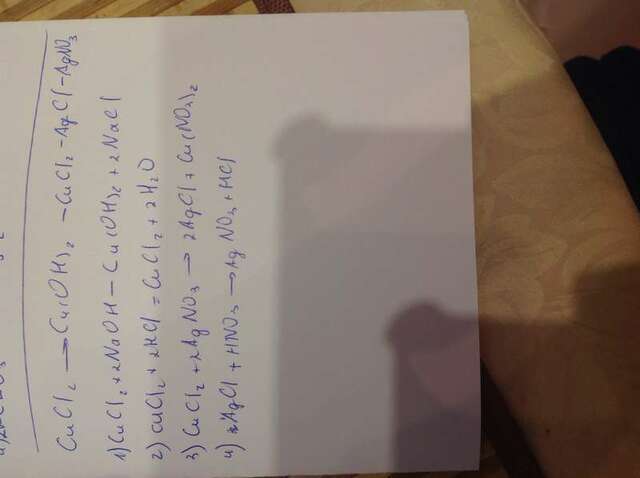 CuCl₂ → Cu(OH)₂ - CuCl₂ - AgCl - AgNO₃
1) CuCl₂ + 2NaOH - Cu(OH)₂ + 2NaCl
2) CuCl₂ + 2HCl = CuCl₂ + 2H₂O
3) CuCl₂ + 2AgNO₃ → 2AgCl + Cu(NO₃)₂
4) AgCl + HNO₃ → AgNO₃ + HCl